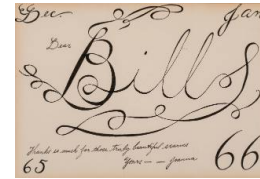 Dec. Jan
Dear
Bills
Thanks so much for those truly beautiful
Yours — — Joanna
65 66